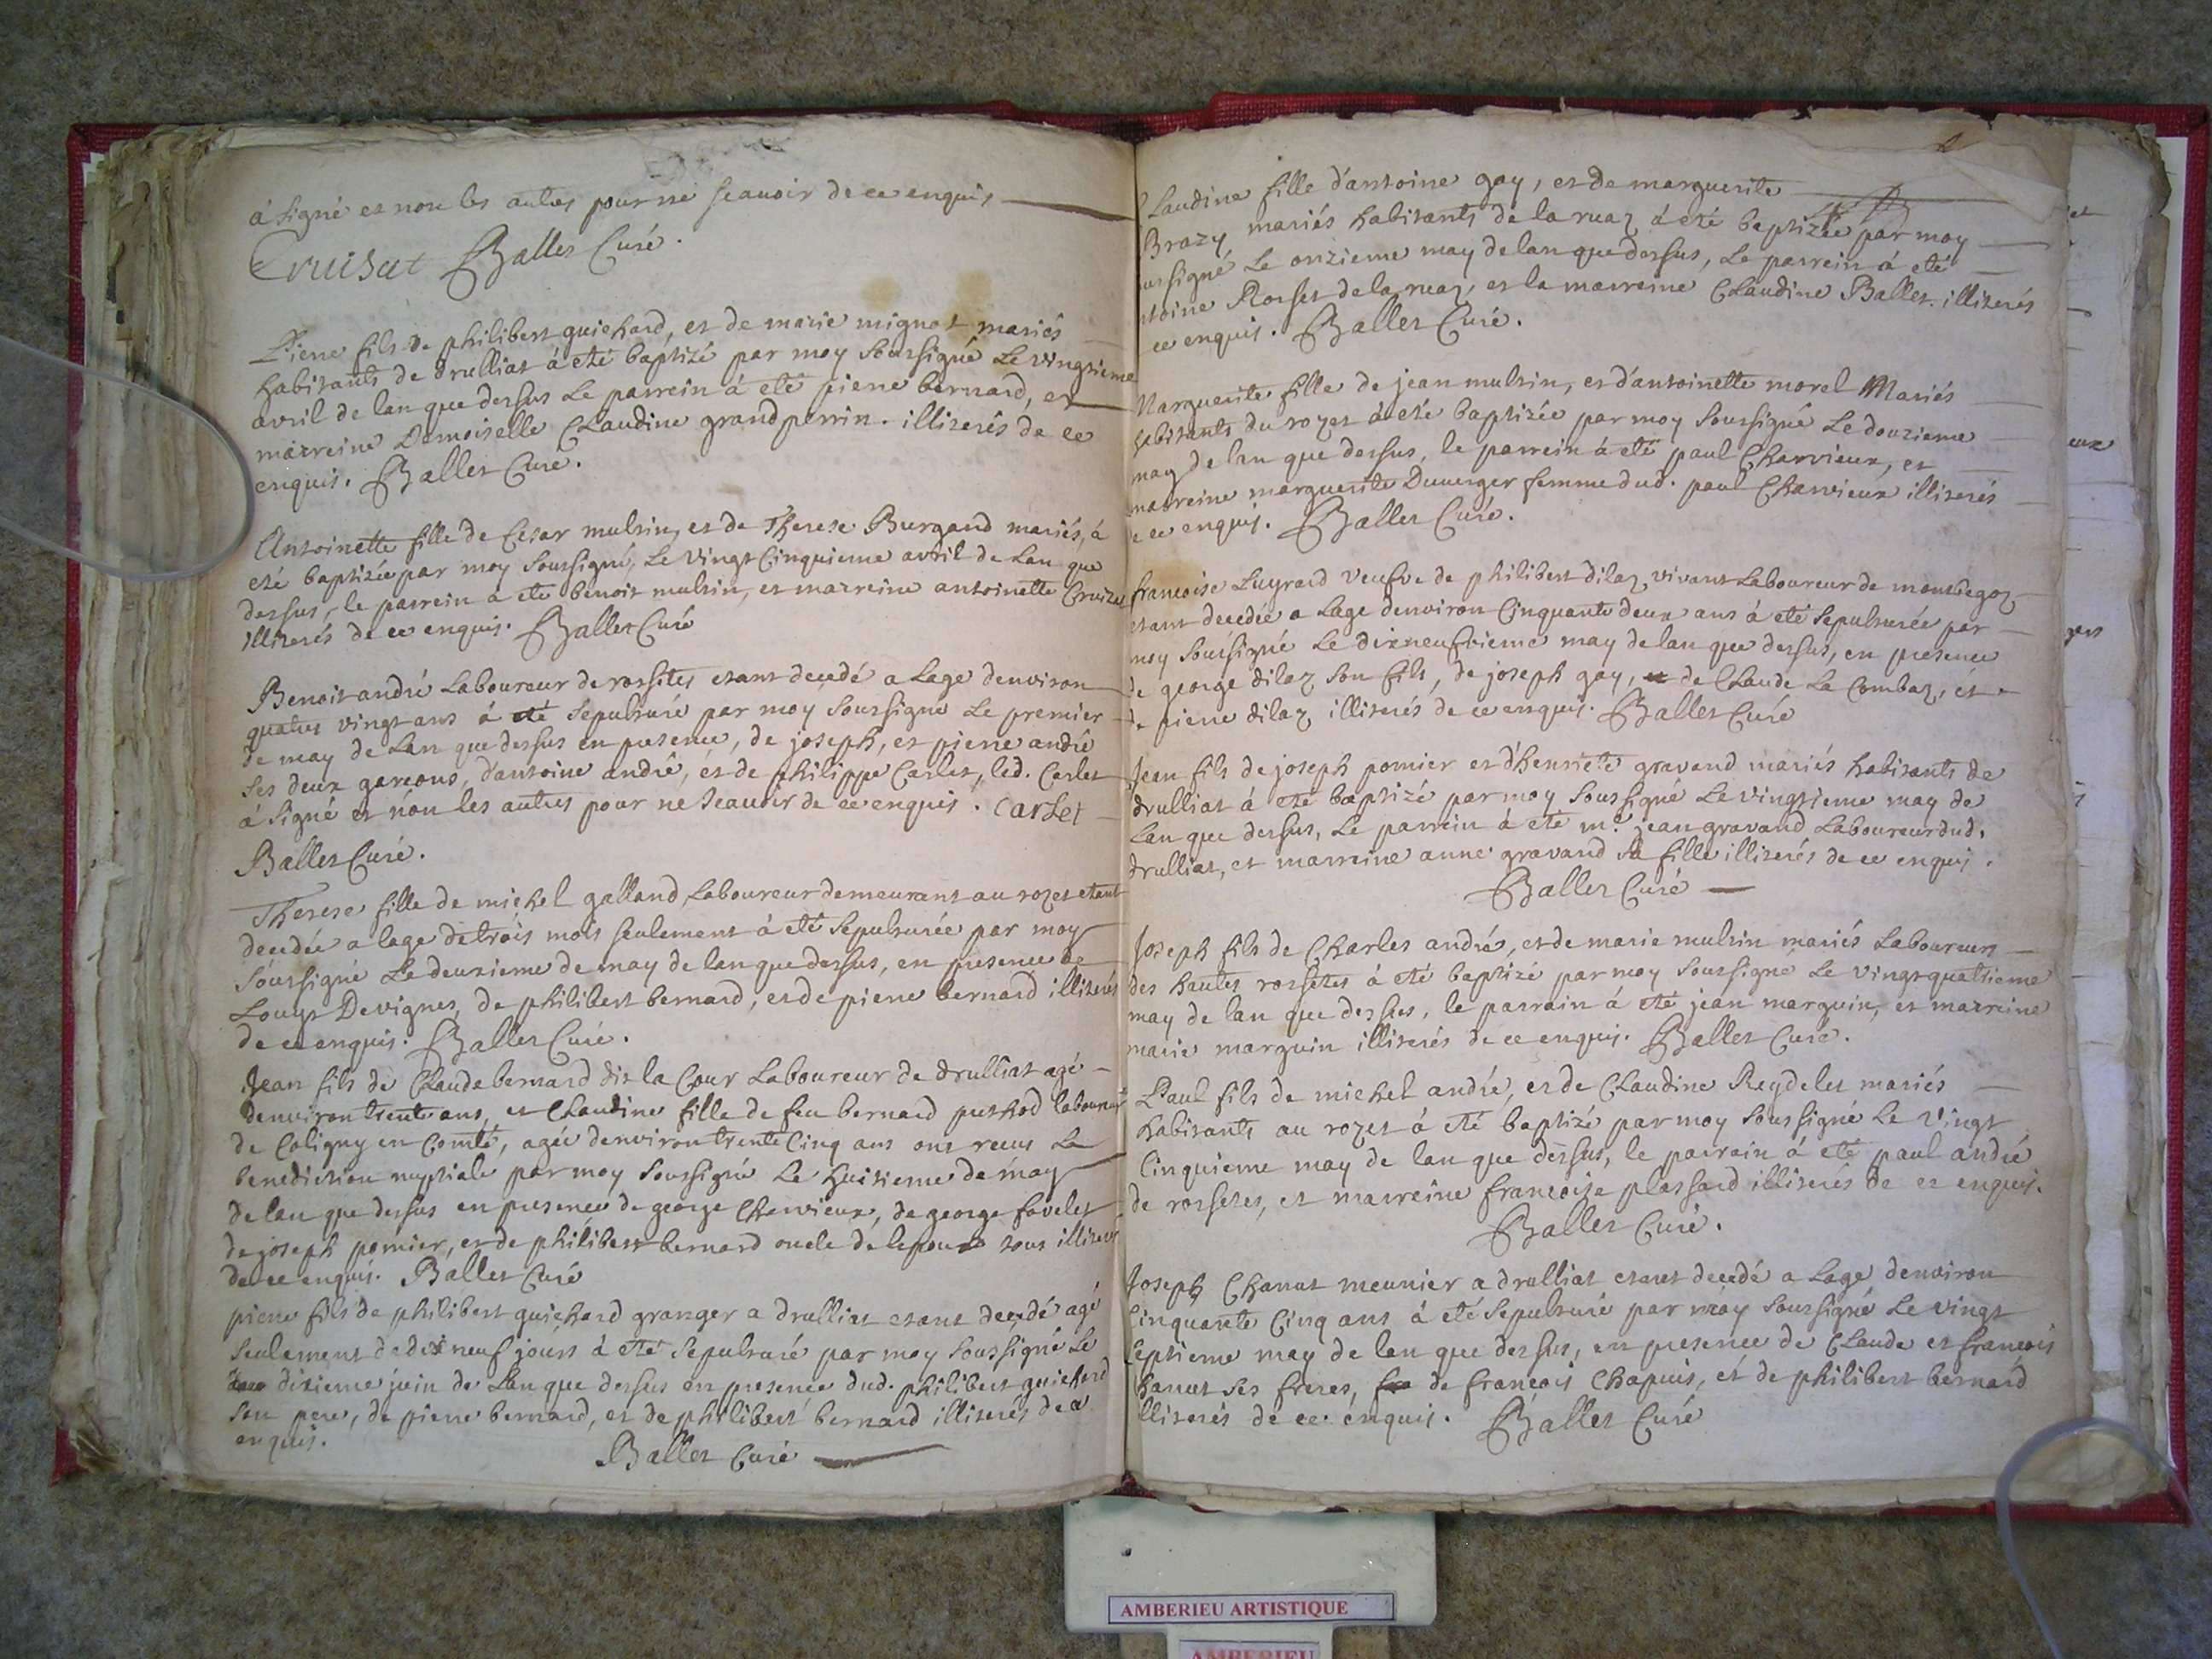 à signé et non les autres pour ne scauoir de ce enquis
Cruisat Ballet Curé.
Pierre fils de philibert guichard, et de marie mignot mariés
habitants de drulliat à eté baptizé par moy soussigné Le vingtieme
avril de lan que dessus Le parrein à eté pierre bernard, et
marreine Demoiselle Claudine grandperrin. illiterés de ce
enquis. Ballet Curé.
Antoinette fille de Cesar mulsin, et de Therese Burgand mariés, à
eté baptizée par moy soussigné, Le vingt Cinquieme avril de Lan que
dessus, le parrein à eté benoit mulsin, et marreine antoinette
illiterés de ce enquis. Ballet Curé
Benoit andré Laboureur de rossetes etant decedé a Lage denviron
quatre vingt ans à eté sepulturé par moy soussigné Le premier
de may de Lan que dessus en presence, de joseph, et pierre andré
ses deux garcons, d'antoine andré, et de philippe Carlet, led. Carlet
à signé et non les autres pour ne scauoir de ce enquis. Carlet
Ballet Curé.
Therese fille de michel galland Laboureur demeurant au rozet etant
decedée a lage de trois mois seulement à eté sepulturée par moy
soussigné Le deuxieme de may de lan que dessus, en presence de
Louys Devignes, de philibert bernard, et de pierre bernard illiterés
de ce enquis. Ballet Curé.
Jean fils de Claude bernard dit la Cour Laboureur de drulliat agé
denviron trente ans, et Claudine fille de feu bernard puthod laboureur
de Coligny en Comté, agée denviron trente Cinq ans ont receu La
benediction nuptiale par moy soussigné Le huitieme de may
de lan que dessus en presence de george Charvieux, de george favelet
de joseph pomier, et de philibert bernard oncle de lepoux tous illiterés
de ce enquis. Ballet Curé
pierre fils de philibert guichard granger a drulliat etant decedé agé
seulement de dix neuf jours à eté sepulturé par moy soussigné Le
dixieme juin de Lan que dessus en presence dud. philibert guichard
son pere, de pierre bernard, et de philibert bernard illiterés de ce
enquis.
Ballet Curé
Claudine fille d'antoine gay, et de marguerite
Brazy mariés habitants de la ruaz à eté baptizée par moy
soussigné Le onzieme may de lan que dessus, Le parrein à eté
antoine de la ruaz, et la marreine Claudine Ballet illiterés
ce enquis. Ballet Curé.
Marguerite fille de jean mulsin, et d'antoinette morel Mariés
habitants du rozet à eté baptizée par moy soussigné Le douzieme
may de lan que dessus, le parrein à eté paul Charvieux, et
marreine marguerite Duuerger femme dud. paul Charvieux illiterés
de ce enquis. Ballet Curé.
francoise Luyrard veufve de philibert dilaz vivant Laboureur de
etant decedée a Lage denviron Cinquante deux ans à eté sepulturée par
moy soussigné Le dixneufvieme may de lan que dessus, en presence
de george dilaz son fils, de joseph gay, de Claude La Combaz, et
de pierre dilaz illiterés de ce enquis. Ballet Curé
Jean fils de joseph pomier et d'henriete gravand mariés habitants de
drulliat à eté baptizé par moy soussigné Le vingtieme may de
Lan que dessus, Le parrein à eté me. jean gravand Laboureur dud.
drulliat, et marreine anne gravand sa fille illiterés de ce enquis.
Ballet Curé
Joseph fils de Charles andré, et de marie mulsin mariés Laboureurs
des hautes rossetes à eté baptizé par moy soussigné Le vingtquatrieme
may de lan que dessus, le parrain à eté jean marguin, et marreine
marie marguin illiterés de ce enquis. Ballet Curé.
Paul fils de michel andré, et de Claudine Reydelet mariés
habitants au rozet à eté baptizé par moy soussigné Le vingt
Cinquieme may de lan que dessus, le parrain à eté paul andré
de rossetes, et marreine francoise plassard illiterés de ce enquis.
Ballet Curé.
Joseph Chanut meunier a drulliat etant decedé a Lage denviron
Cinquante Cinq ans à eté sepulturé par moy soussigné Le vingt
septieme may de lan que dessus, en presence de Claude et francois
Chanut ses freres, de francois Chapuis, et de philibert bernard
illiterés de ce enquis. Ballet Curé
AMBERIEU ARTISTIQUE
AMBERIEU